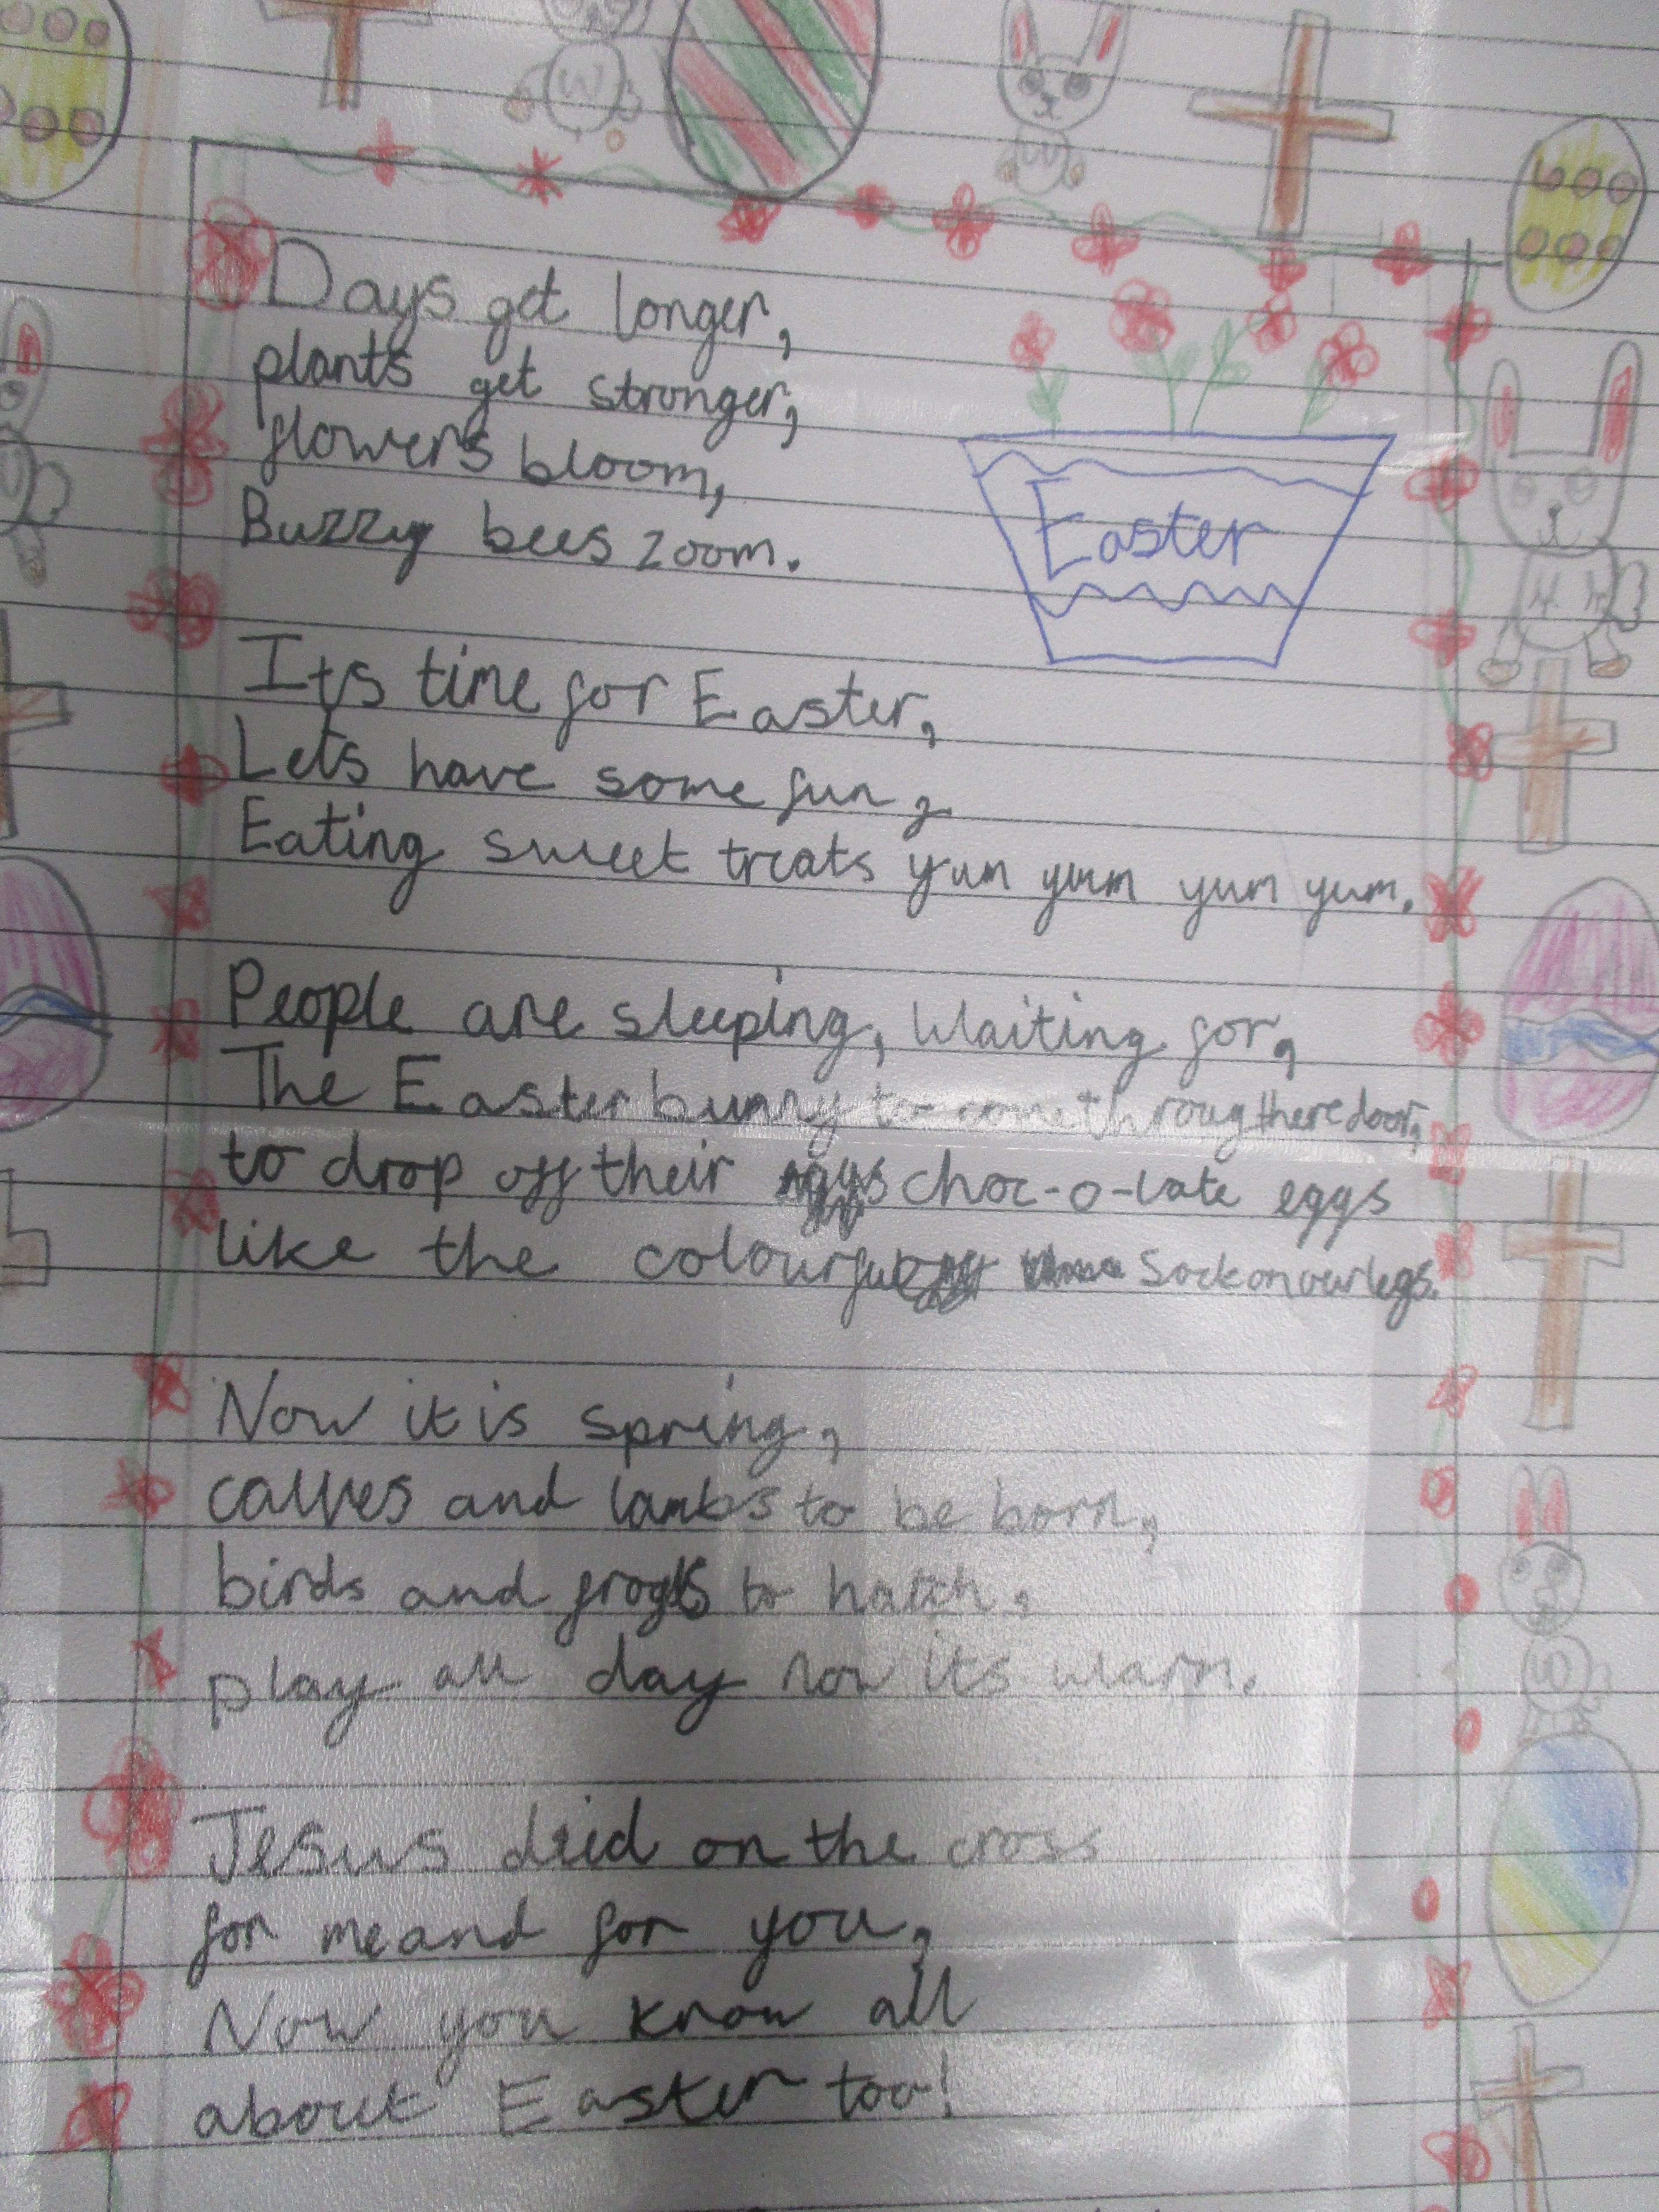 Days get longer,
plants get stronger,
flowers bloom,
Buzzy bees zoom.
Easter
Its time for Easter,
Lets have some fun,
Eating sweet treats yum yum yum yum.
People are sleeping, Waiting for,
The Easter bunny to come throug there door,
to drop off their choc-o-late eggs
like the colourful sock on our legs.
Now it is spring,
calves and lambs to be born,
birds and frogs to hatch,
play all day now its warm.
Jesus deid on the cross
for me and for you,
Now you know all
about Easter too!